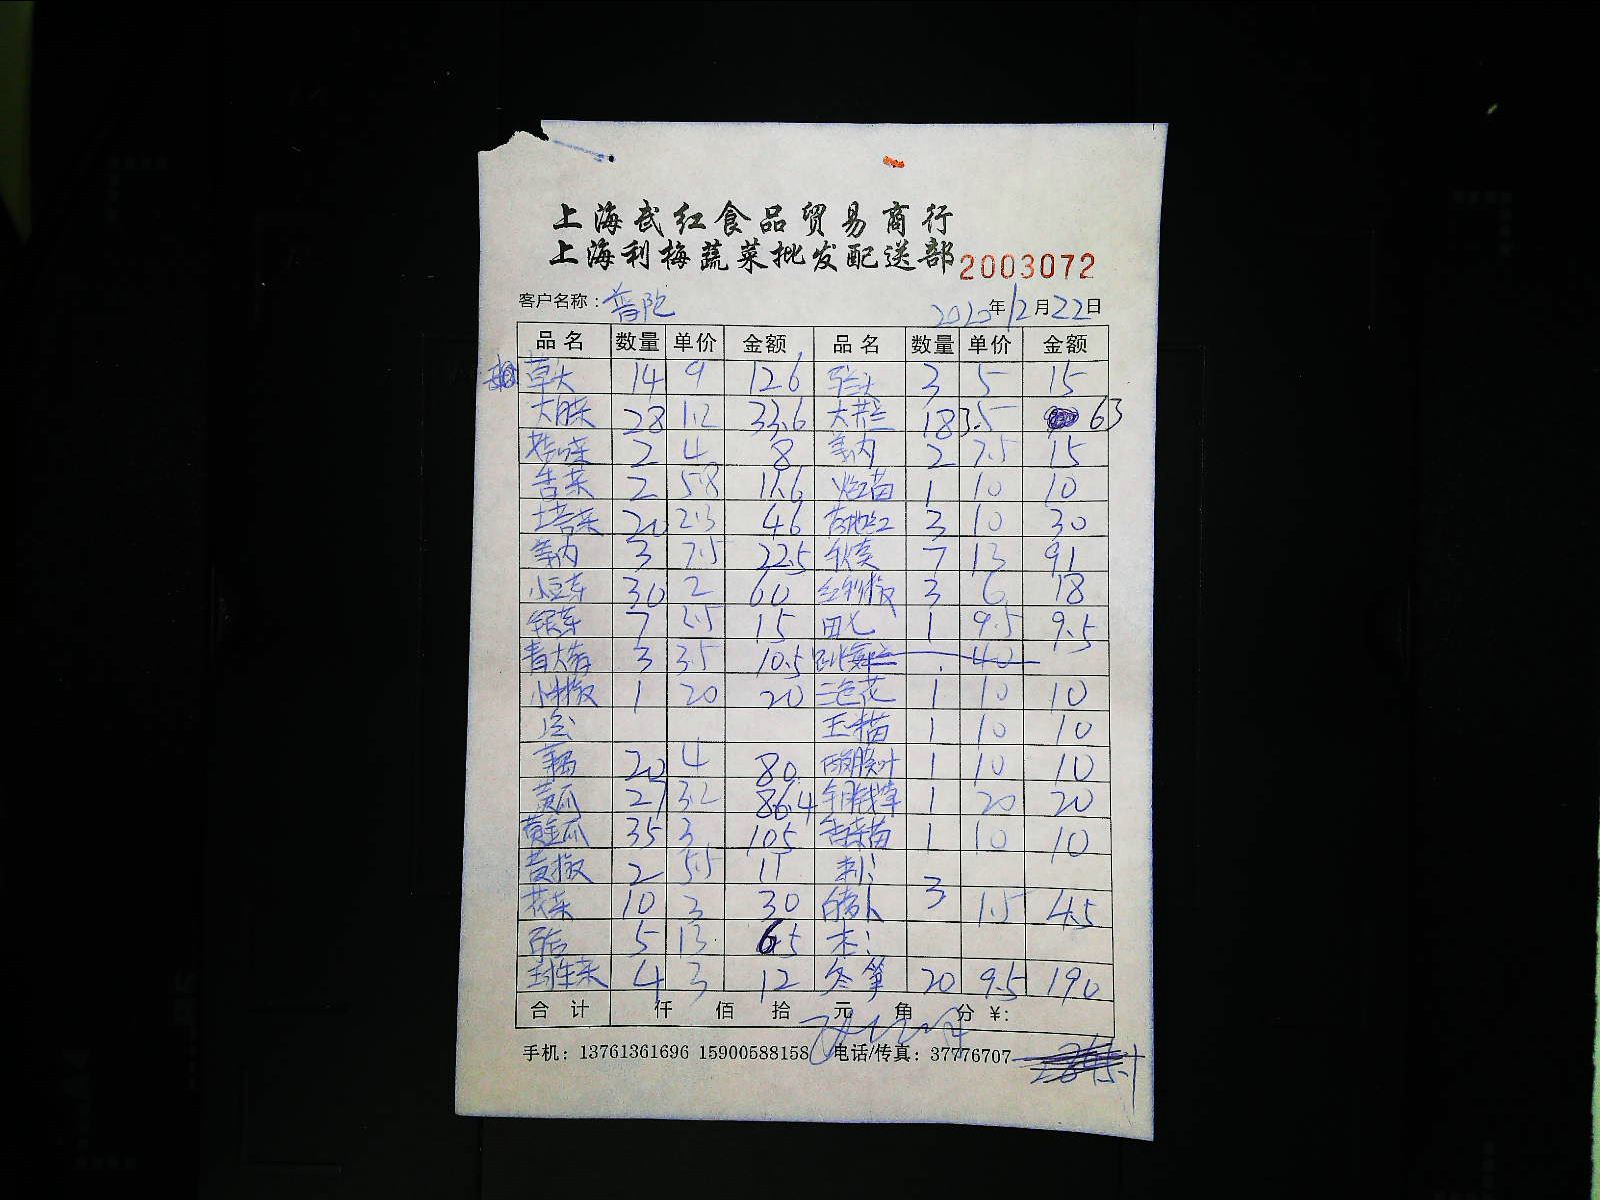 上海武红食品贸易商行
上海利梅蔬菜批发配送部 2003072
客户名称：普陀 2020年12月22日
品名 数量 单价 金额 品名 数量 单价 金额
草头 14 9 126 3 5 15
大白菜 28 1.2 33.6 大芥兰 18 3.5 63
2 4 8 美内 2 7.5 15
杏菜 2 5.8 11.6 苗 1 10 10
土杏菜 20 2.3 46 3 10 30
美内 3 7.5 22.5 7 13 91
小豆芽 30 2 60 红利椒 3 6 18
银芽 7 15 田七 1 9.5 9.5
青大 3 3.5 10.5 40
小米椒 1 20 20 三色花 1 10 10
玉米苗 1 10 10
20 4 80 叶 1 10 10
黄瓜 27 3.2 86.4 铜钱草 1 20 20
黄金瓜 35 3 105 苗 1 10 10
黄椒 2 5.5 11
花菜 10 3 30 白萝卜 3 1.5 4.5
5 13 65
球生菜 4 3 12 冬笋 20 9.5 190
合计 仟 佰 拾 元 角 分 ¥:
手机：13761361696 15900588158 电话/传真：37776707